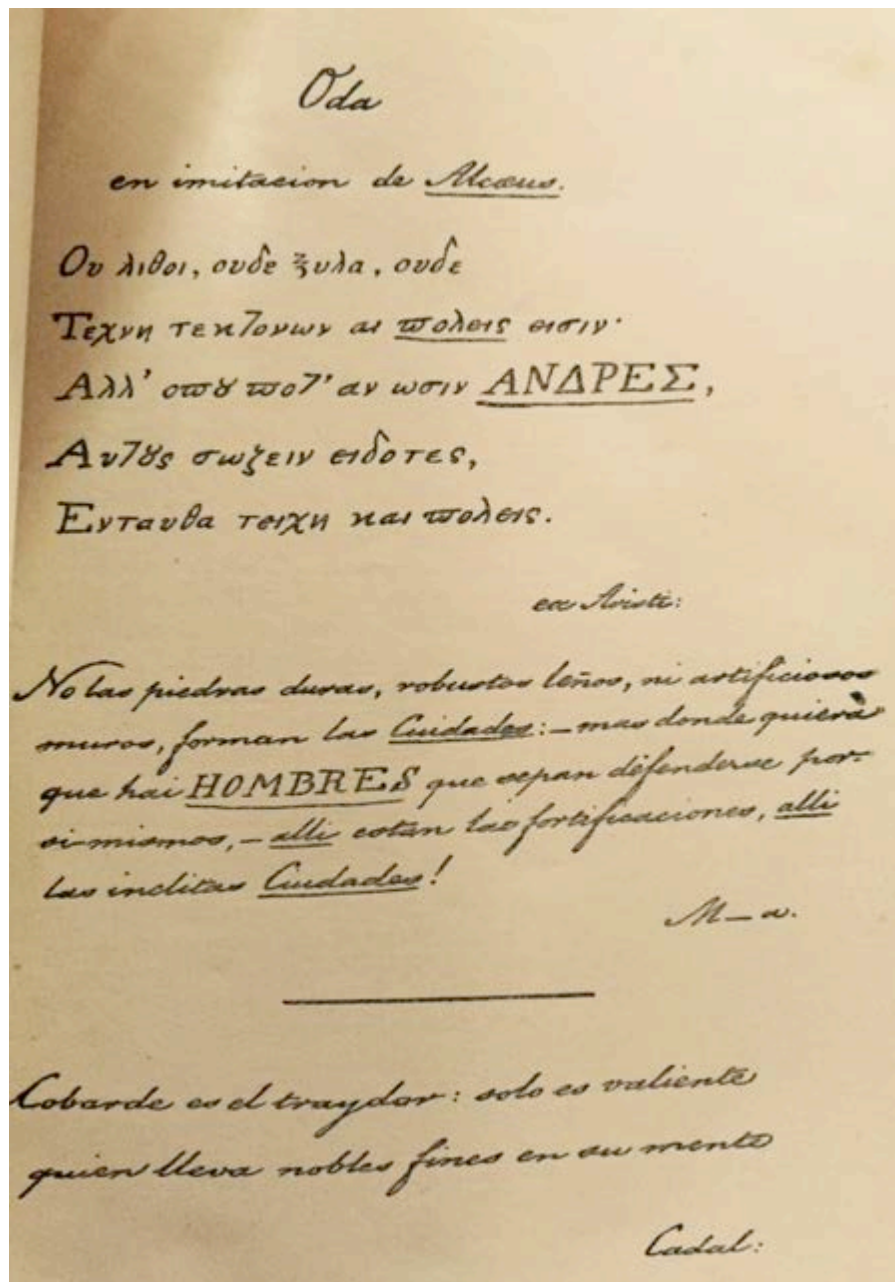 Oda
en imitacion de Alcæus.
Ου λιθοι, ουδε ξυλα, ουδε
Τεχνη τεκτονων αι πολεις εισιν·
Αλλ' οπου ποτ' αν ωσιν ΑΝΔΡΕΣ,
Αυτους σωζειν ειδοτες,
Ενταυθα τειχη και πολεις.
ex Aristi:
No las piedras duras, robustos leños, ni artificiosos
muros, forman las Cuidades:—mas donde quiera
que hai HOMBRES que sepan defenderse por-
si-mismos,—alli estan las fortificaciones, alli
las inclitas Ciudades!
M—a.
Cobarde es el traydor: solo es valiente
quien lleva nobles fines en su mente
Cadal: